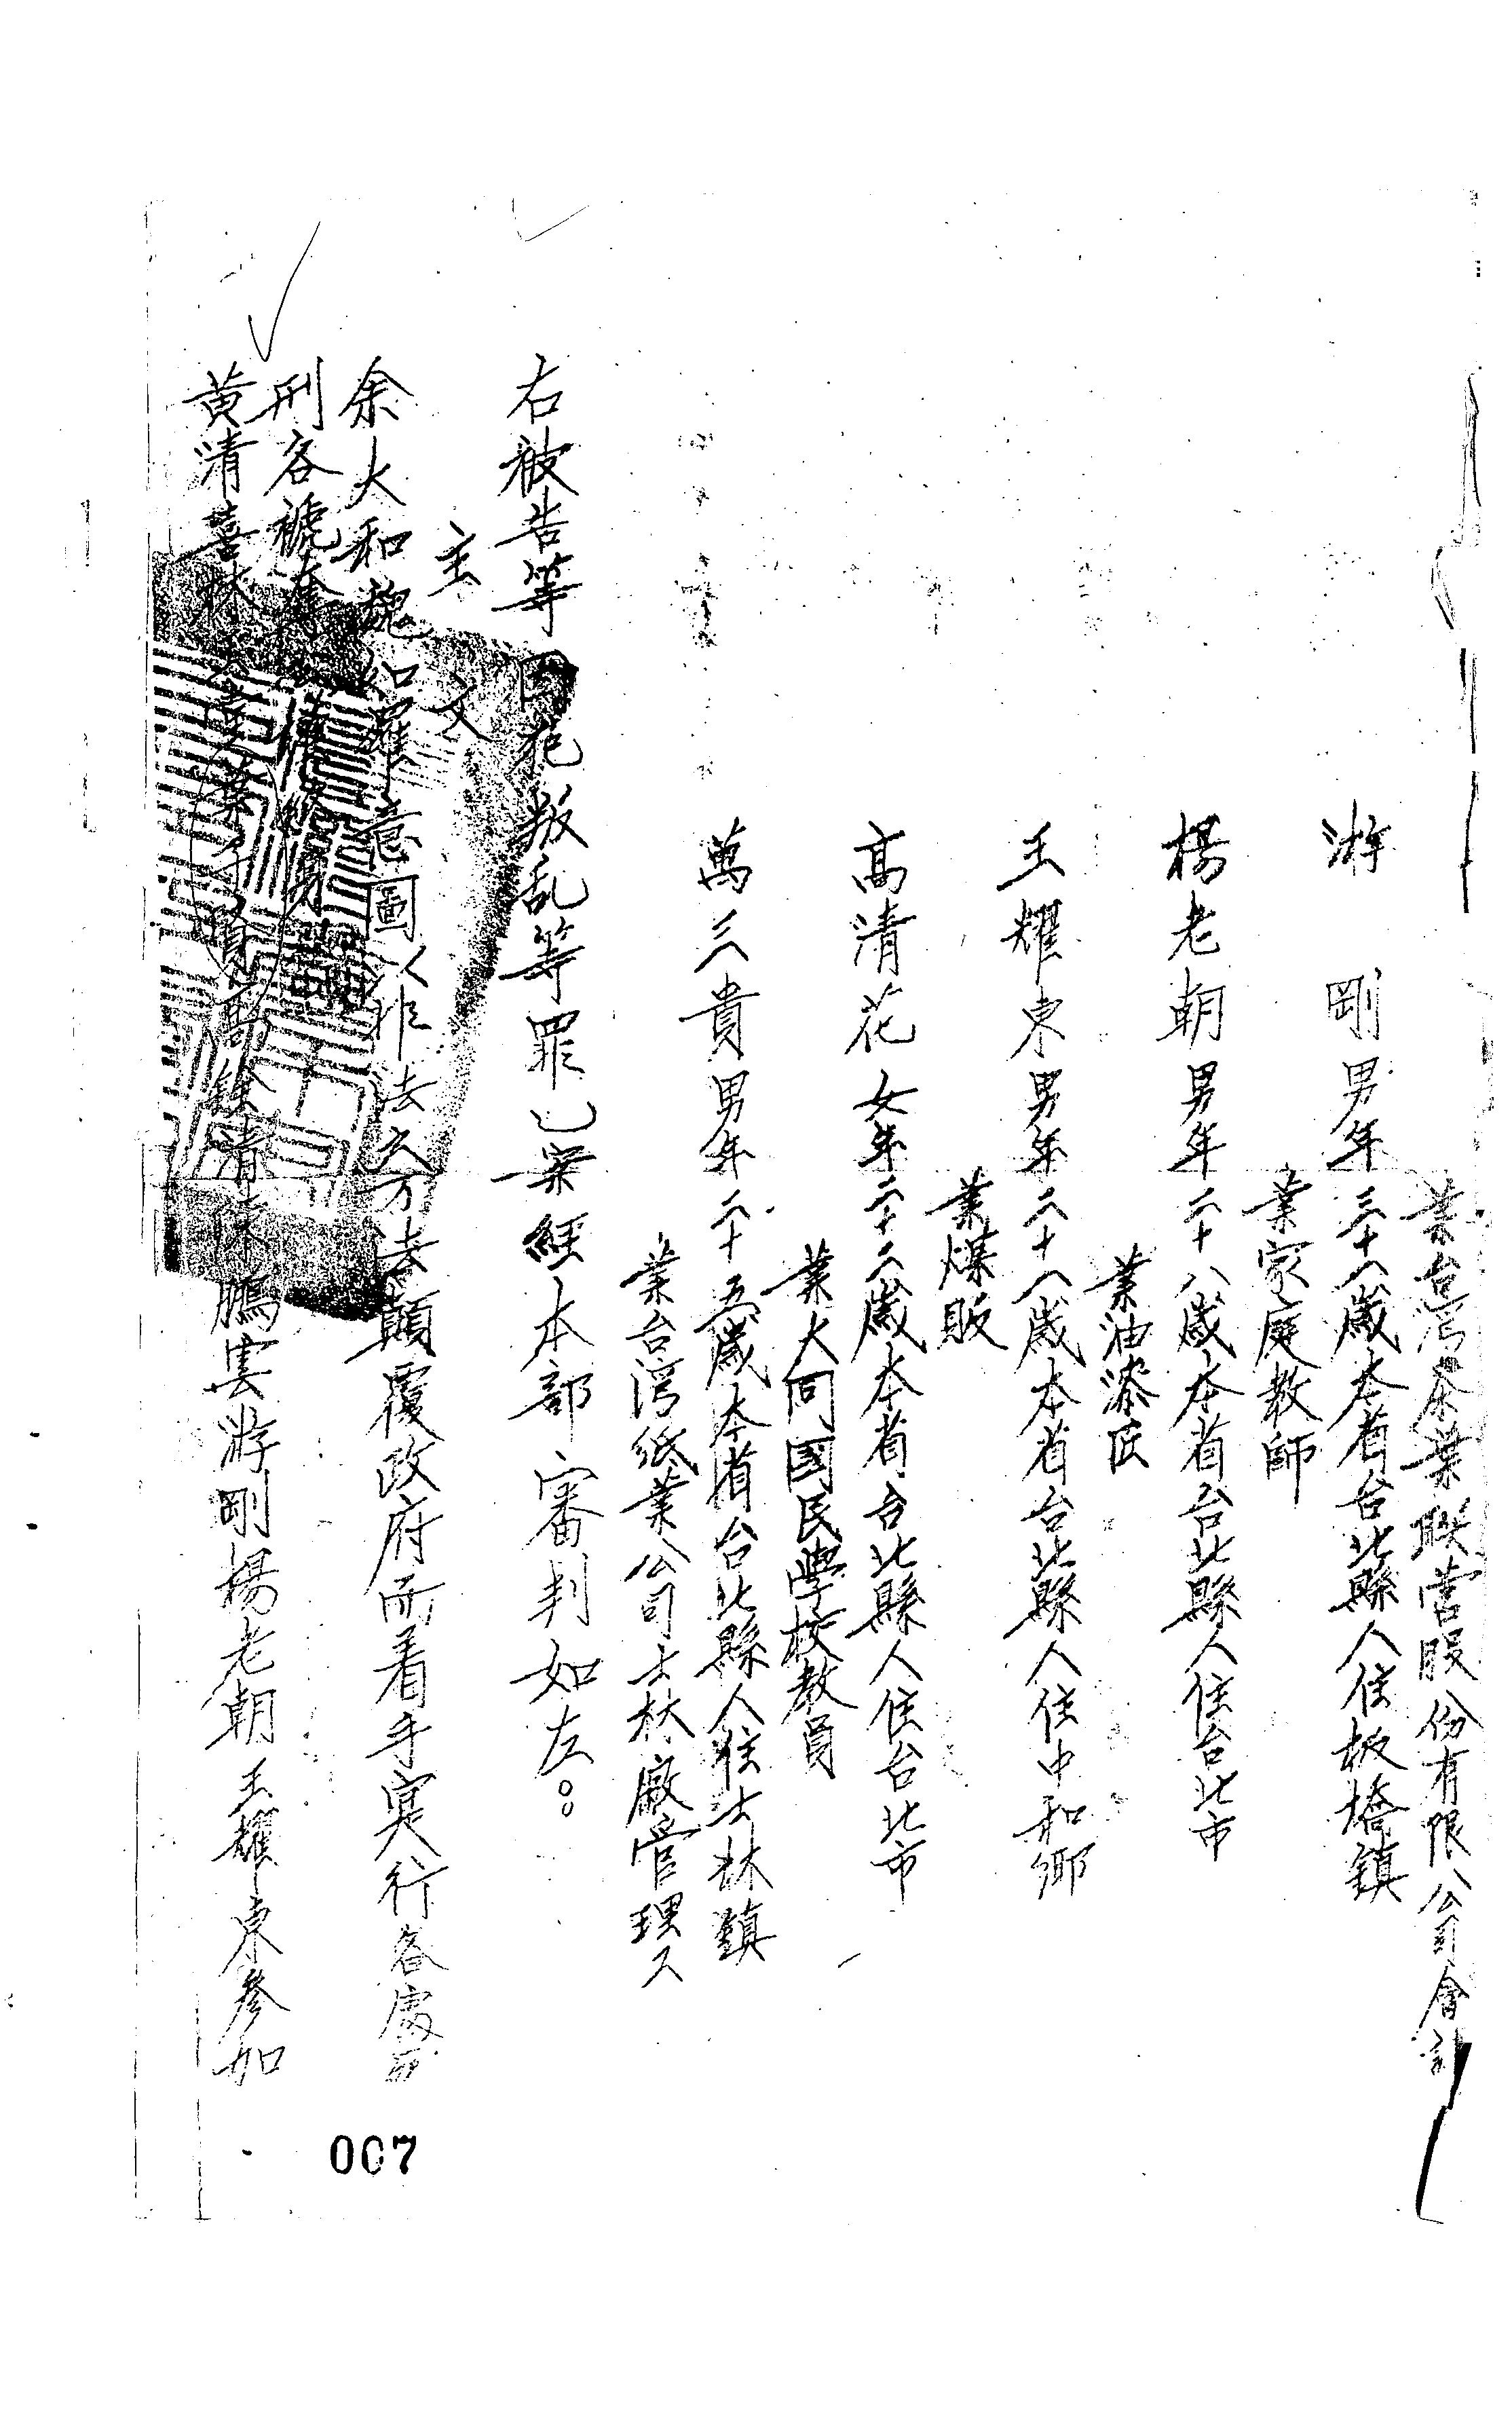 業台灣茶業联营股份有限公司會計
游 剛 男年三十八歲本省台北縣人住板橋鎮
業家庭教師
楊老朝 男年二十八歲本省台北縣人住台北市
業油漆匠
王耀東 男年二十八歲本省台北縣人住中和鄉
業煤販
高清花 女年二十二歲本省台北縣人住台北市
業大同國民學校教員
萬三貴 男年二十五歲本省台北縣人住士林鎮
業台灣紙業公司士林廠管理人
右被告等因犯叛乱等罪乙案經本部審判如左。
主 文
余大和魏如羅意圖以非法之方法顛覆政府而着手实行各處死
刑各褫奪公權終身
黃清喜林葉高銀清陳鵬雲游剛楊老朝王耀東參加
007